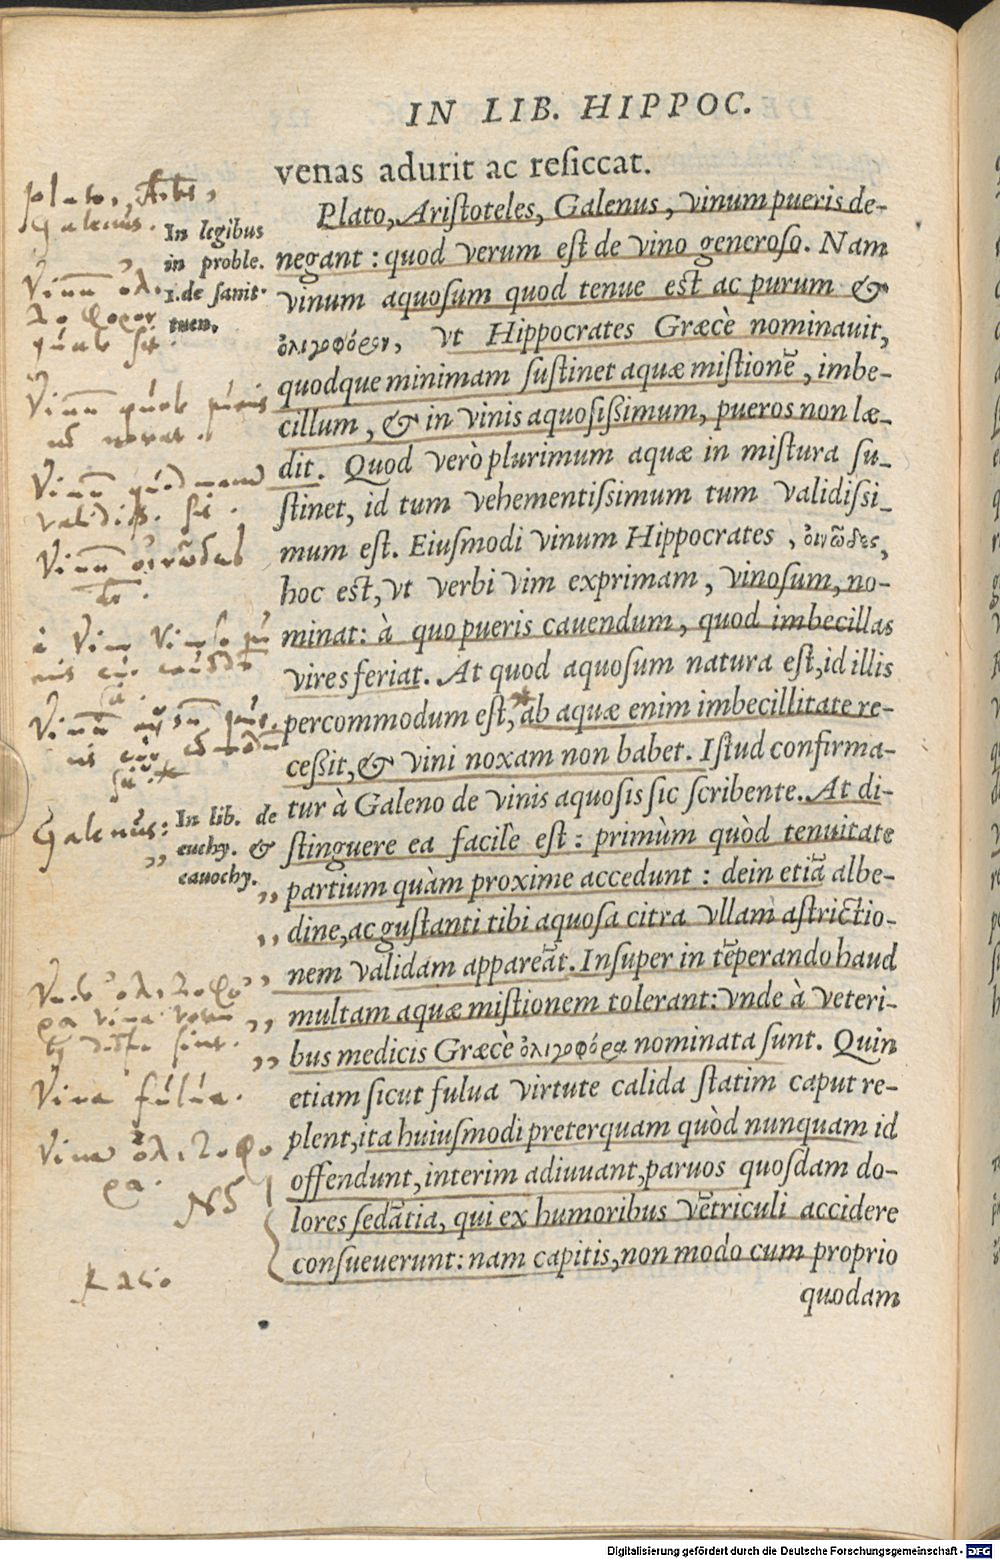 IN LIB. HIPPOC.
venas adurit ac reſiccat.
Plato, Ariſtoteles, Galenus, vinum pueris de-
negant: quod verum eſt de vino generoſo. Nam
vinum aquoſum quod tenue eſt ac purum &
ὀλιγοφόρον, vt Hippocrates Græcè nominauit,
quodque minimam ſuſtinet aquæ miſtionē, imbe-
cillum, & in vinis aquoſiſsimum, pueros non læ-
dit. Quod verò plurimum aquæ in miſtura ſu-
ſtinet, id tum vehementiſsimum tum validiſsi-
mum eſt. Eiuſmodi vinum Hippocrates, οἰνῶδες,
hoc eſt, vt verbi vim exprimam, vinoſum, no-
minat: à quo pueris cauendum, quod imbecillas
vires feriat. At quod aquoſum natura eſt, id illis
percommodum eſt, ab aquæ enim imbecillitate re-
ceſsit, & vini noxam non habet. Iſtud confirma-
tur à Galeno de vinis aquoſis ſic ſcribente. At di-
ſtinguere ea facile eſt: primùm quòd tenuitate
partium quàm proxime accedunt: dein etiā albe-
dine, ac guſtanti tibi aquoſa citra vllam aſtrictio-
nem validam appareāt. Inſuper in tēperando haud
multam aquæ miſtionem tolerant: vnde à veteri-
bus medicis Græcè ὀλιγοφόρα nominata ſunt. Quin
etiam ſicut fulua virtute calida ſtatim caput re-
plent, ita huiuſmodi preterquam quòd nunquam id
offendunt, interim adiuuant, paruos quoſdam do-
lores ſedātia, qui ex humoribus vētriculi accidere
conſueuerunt: nam capitis, non modo cum proprio
quodam
In legibus
in proble.
1. de ſanit.
tuen.
In lib. de
euchy. &
cacochy.
Plato,
Galenus.
Vinū
Galenus:
Vina fulua.
Vina ὀλιγοφο
ρα.
Ratio
Digitalisierung gefördert durch die Deutsche Forschungsgemeinschaft - DFG